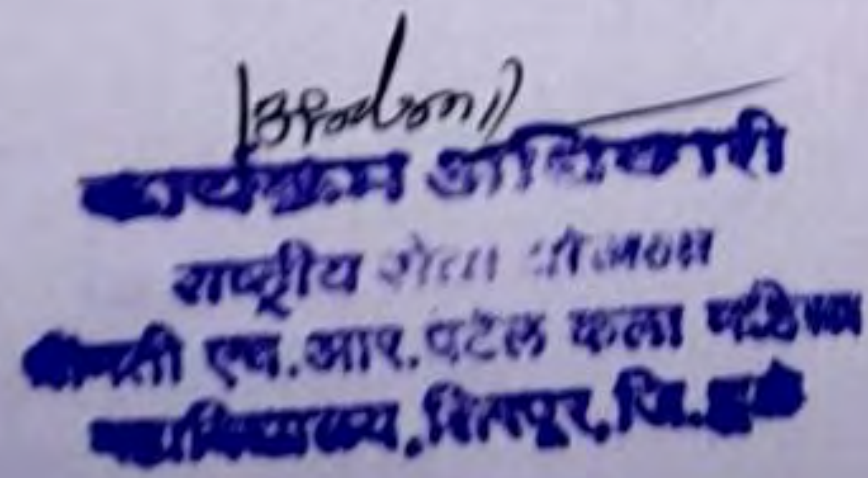 कार्यक्रम अधिकारी
राष्ट्रीय सेवा योजना
श्रीमती एच.आर.पटेल कला महिला
महाविद्यालय,शिरपूर,जि.धुळे